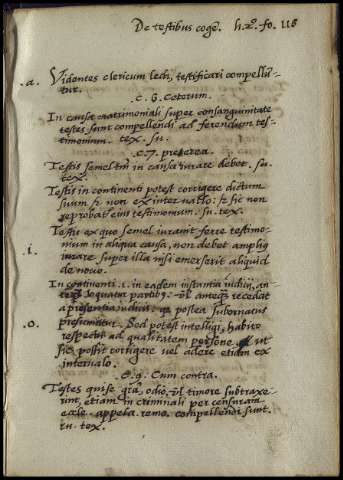 De testibus cogē. h. x. fo. 118
.a. Videntes clericum ledi, testificari compellū-
tur.
c. 6. Ceterum.
In causa matrimoniali super consanguinitate
testes sunt compellendi ad ferendum tes-
timonium. tex. su.
c. 7. preterea.
Testis semel tm̄ in causa iurare debet. su.
tex.
Testis in continenti potest corrigere dictum
suum si. non ex interuallo: sc̄ sic non
reprobat eius testimonium. su. tex.
Testis ex quo semel iurauit ferre testimo-
nium in aliqua causa, non debet ampliꝰ
.i. iurare super illa nisi emerserit aliquid
de nouo.
In continenti .i. in eadem instantia iudicij, an
teqꝫ loquatur partibꝰ: vl̄ anteqꝫ recedat
a presentia iudicis. qꝫ postea subornatus
.o. presumitur. Sed potest intelligi, habito
respectu ad qualitatem persone. ut
sic possit corrigere vel adere etiam ex
interuallo.
c. 9. Cum contra.
Testes qui se grā, odio, vl̄ timore subtraxe-
rint, etiam in criminali per censuram
eccle. appella. remo. compellendi sunt.
su. tex.